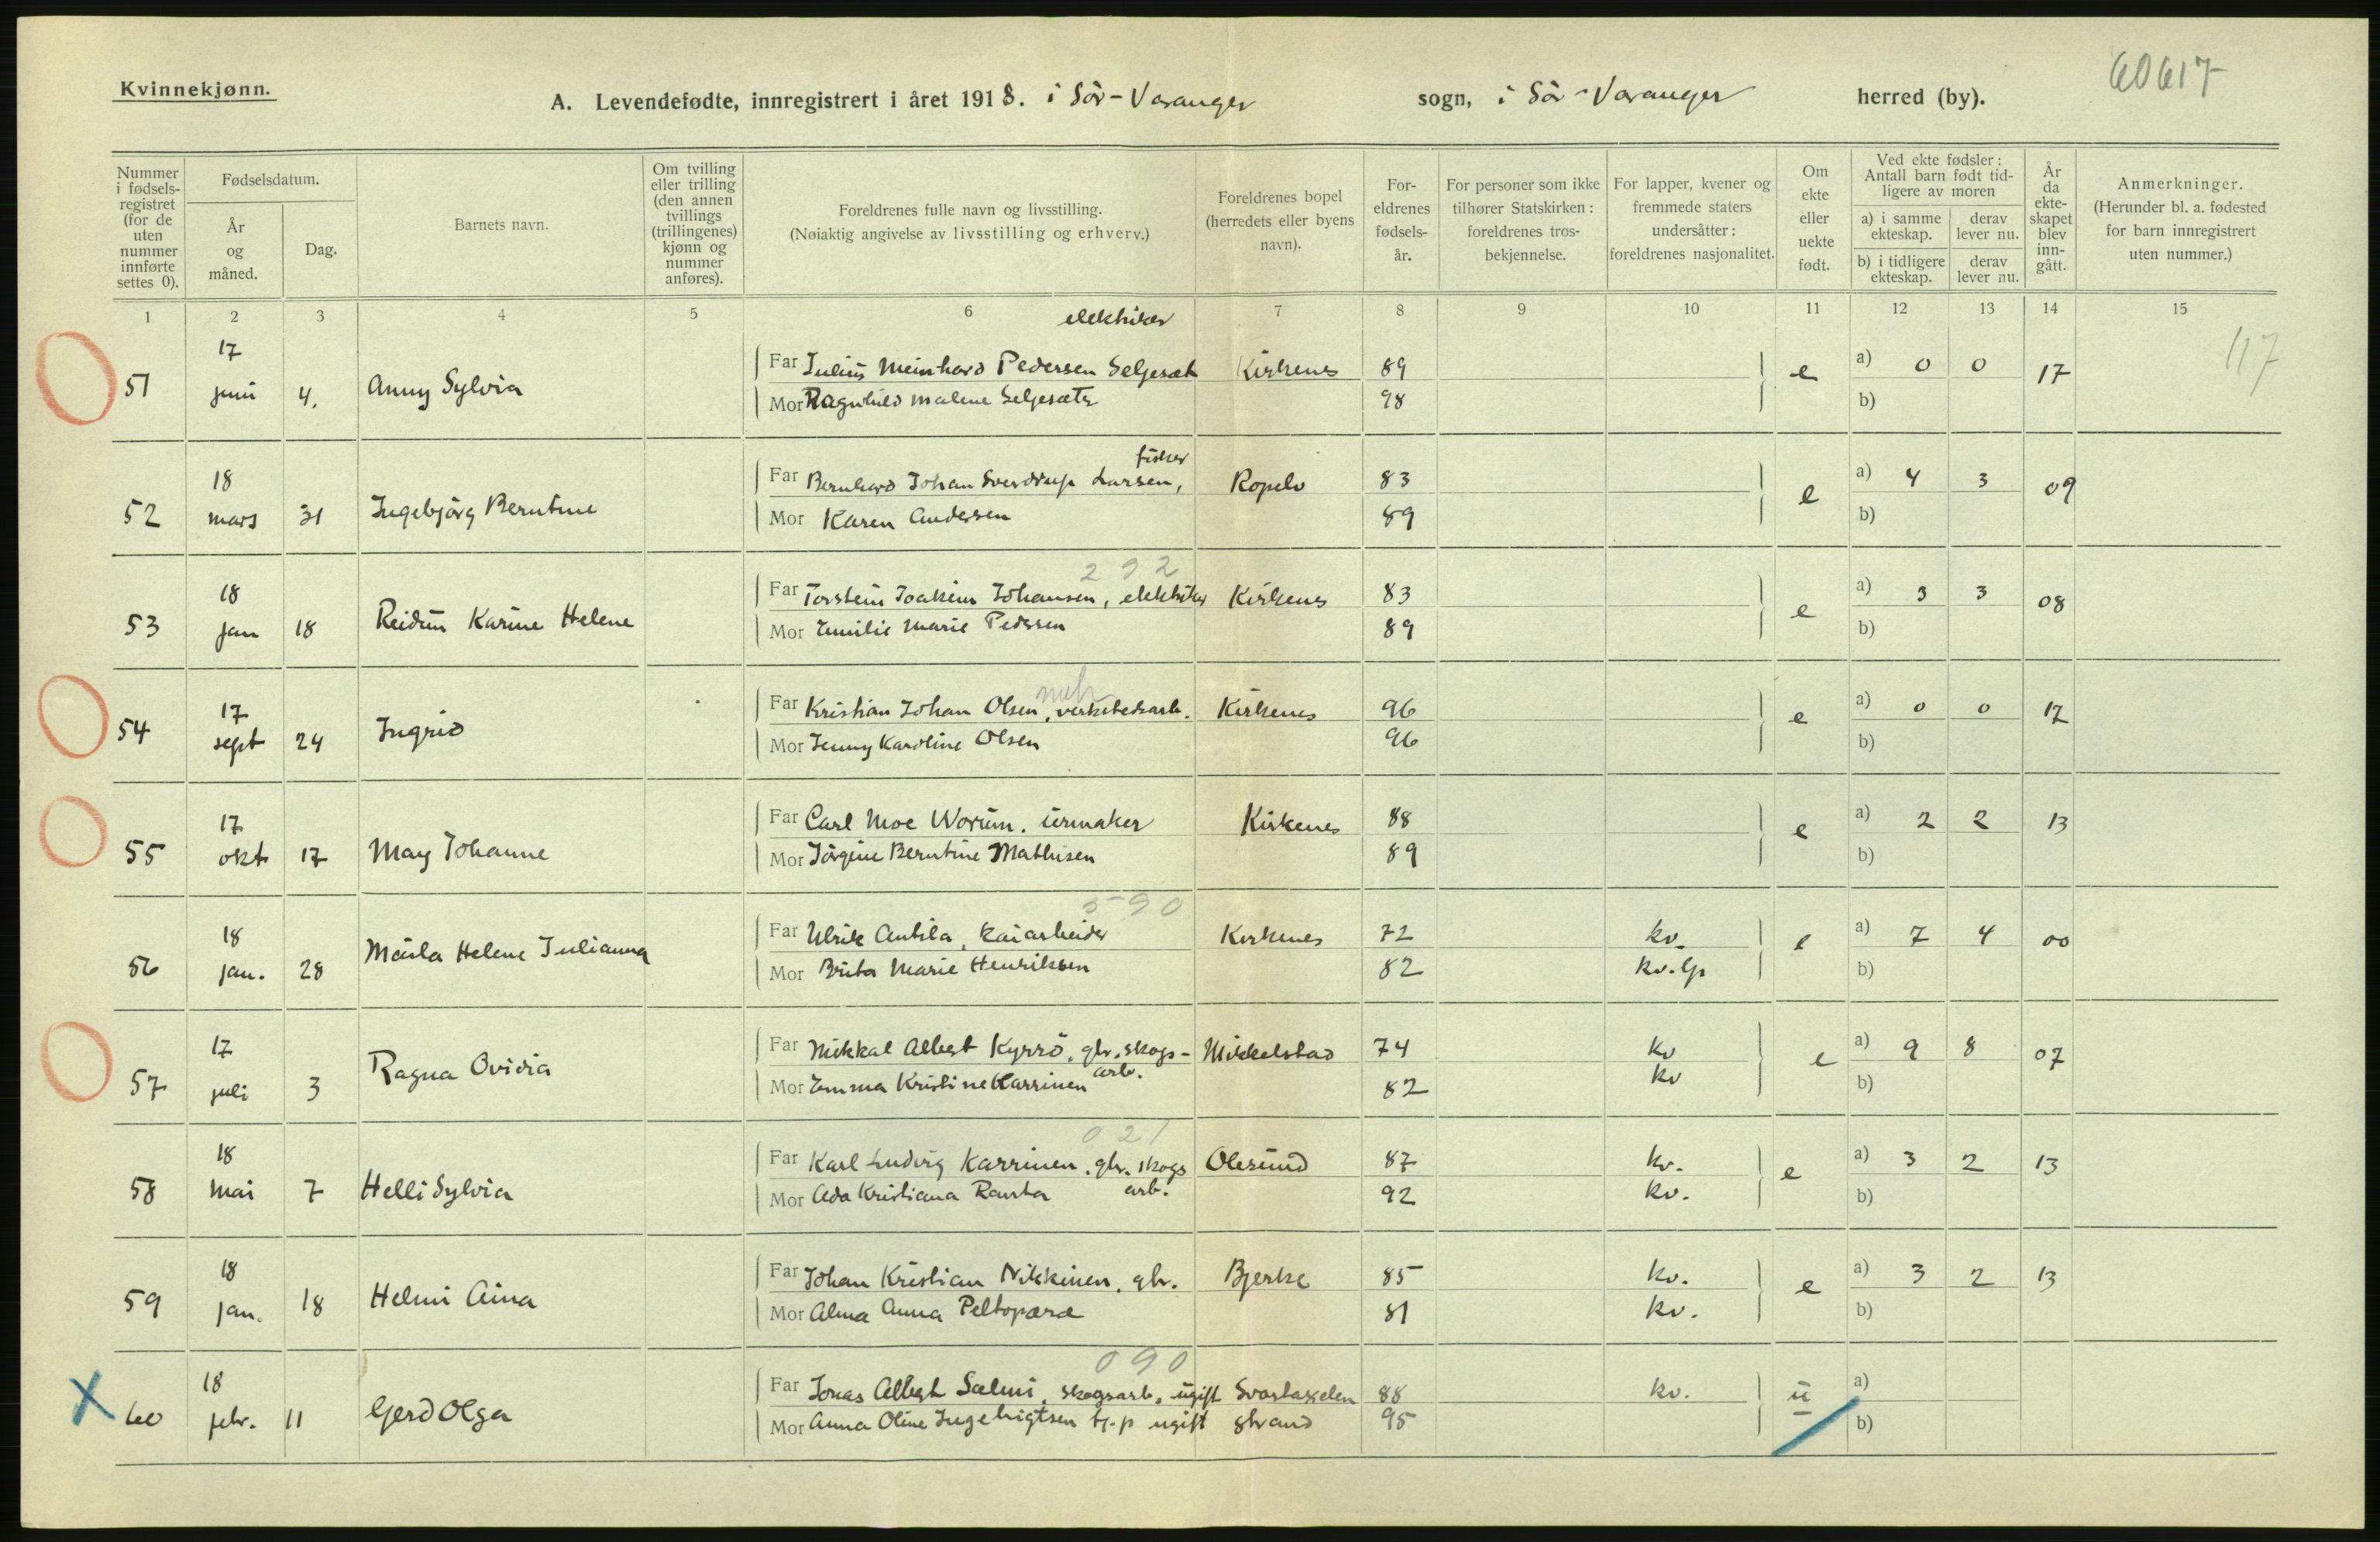 Kvinnekjønn.
60617
A. Levendefødte, innregistrert i året 1918. i Sör-Varanger sogn, i Sör-Varanger herred (by).
Nummer i fødsels-registret (for de uten nummer innførte settes 0).
Fødselsdatum.
År og måned.
Dag.
Barnets navn.
Om tvilling eller trilling (den annen tvillings (trillingenes) kjønn og nummer anføres).
Foreldrenes fulle navn og livsstilling.
(Nøiaktig angivelse av livsstilling og erhverv.)
Foreldrenes bopel (herredets eller byens navn).
For-eldrenes fødsels-år.
For personer som ikke tilhører Statskirken: foreldrenes tros-bekjennelse.
For lapper, kvener og fremmede staters undersåtter: foreldrenes nasjonalitet.
Om ekte eller uekte født.
Ved ekte fødsler: Antall barn født tid-ligere av moren
a) i samme ekteskap.
derav lever nu.
b) i tidligere ekteskap.
derav lever nu.
År da ekte-skapet blev inn-gått.
Anmerkninger.
(Herunder bl. a. fødested for barn innregistrert uten nummer.)
1 2 3 4 5 6 7 8 9 10 11 12 13 14 15
elektriker
117
17
Far Julius Meinhard Pedersen Seljesæt Kirkenes 89 e a) 0 0 17
51 juni 4. Anny Sylvia
Mor Ragnhild Malene Seljesæter 98 b)
fisker
18
Far Bernhard Johan Sverdrup Larsen, Ropelv 83 e a) 4 3 09
52 mars 31 Ingebjörg Berntine
Mor Karen Andersen 89 b)
292
18
Far Torstein Joakim Johansen, elektriker Kirkenes 83 e a) 3 3 08
53 jan 18 Reidun Karine Helene
Mor Emilie Marie Pedersen 89 b)
17
Far Kristian Johan Olsen, verkstedsarb. Kirkenes 96 e a) 0 0 17
54 sept 24 Ingrid
Mor Jenny Karoline Olsen 96 b)
17
Far Carl Moe Worum. urmaker Kirkenes 88 e a) 2 2 13
55 okt 17 May Johanne
Mor Jörgine Berntine Mathisen 89 b)
590
18
Far Ulrik Antila, kaiarbeider Kirkenes 72 kv. e a) 7 4 00
56 jan. 28 Helene Julianna
Mor Brita Marie Henriksen 82 kv.lp b)
17
Far Mikkal Albert Kyrrö, gbr. skogs- Mikkelstad 74 kv e a) 9 8 07
arb.
57 juli 3 Ragna Ovidia
Mor Emma Kristine Karrinen 82 kv b)
021
18
Far Karl Ludvig Karrinen. gbr. skogs Olesund 87 kv. e a) 3 2 13
58 mai 7 Helli Sylvia
Mor Ada Kristiana Ranta arb. 92 kv. b)
18
Far Johan Kristian Nikkinen. gbr. Bjerke 85 kv. e a) 3 2 13
59 jan. 18 Helmi Aina
Mor Alma Anna Peltoperæ 81 kv. b)
090
18
Far Jonas Albert Salmi, skogsarb, ugift Svartaxelen 88 kv. u a)
X 60 febr. 11 Gerd Olga
Mor Anna Oline Ingebrigtsen tj.p ugift strand 95 b)